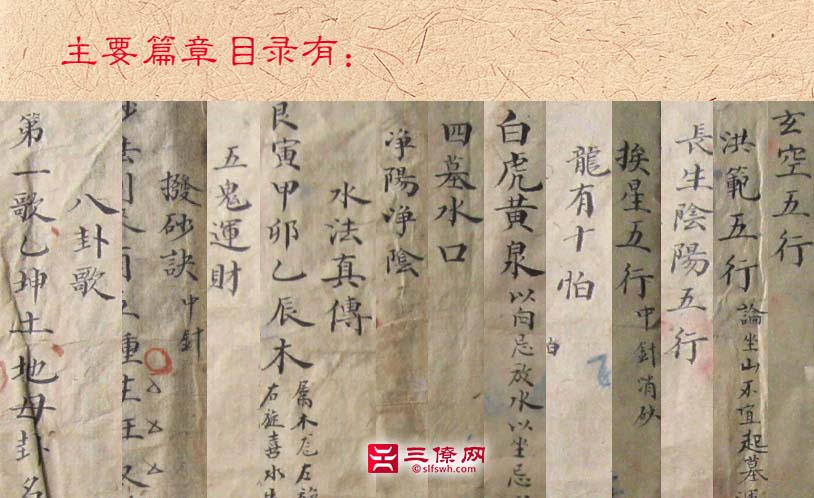 主要篇章目录有：
玄空五行
洪範五行論坐山不宜起墓
長生陰陽五行
挨星五行中針消砂
龍有十怕
白
白虎黃泉以向忌放水以坐忌
四墓水口
淨陽淨陰
水法真傳
艮寅甲卯乙辰木
屬木龙左
右旋喜水
五鬼運財
撥砂訣中針
八卦歌
第一歌乙坤土地母卦名
三僚网
© slfswh.com